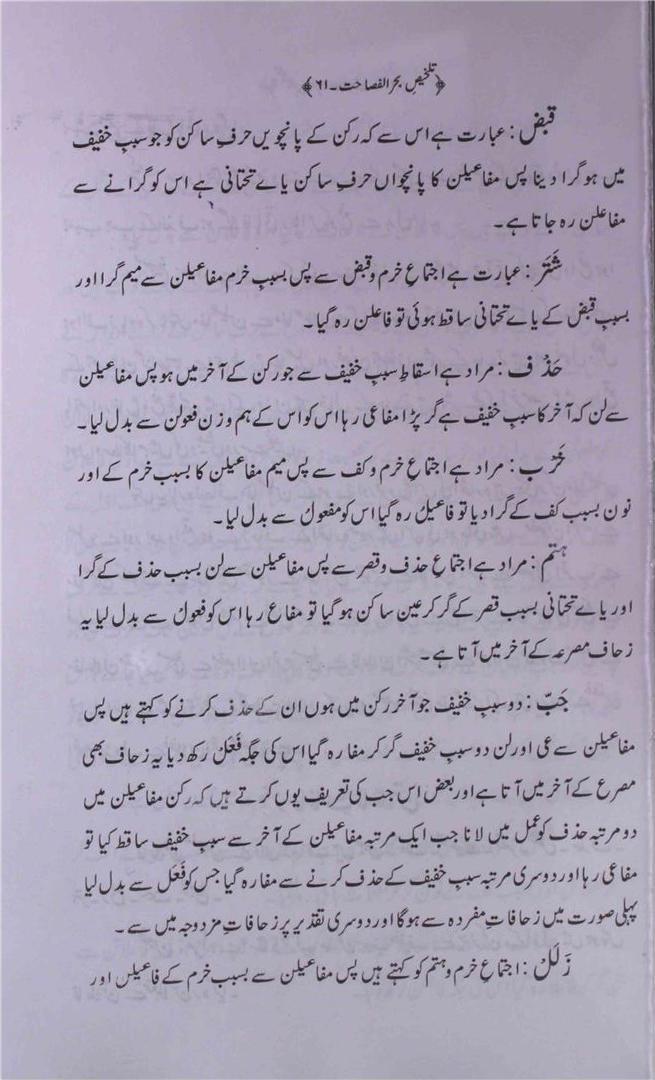 ﴿تلخیصِ بحر الفصاحت۔۶۱﴾
قبض: عبارت ہے اس سے کہ رکن کے پانچویں حرفِ ساکن کو جو سببِ خفیف
میں ہو گرا دینا پس مفاعیلن کا پانچواں حرفِ ساکن یاے تحتانی ہے اس کو گرانے سے
مفاعلن رہ جاتا ہے۔
شَتَر: عبارت ہے اجتماعِ خرم و قبض سے پس بسببِ خرم مفاعیلن سے میم گرا اور
بسببِ قبض کے یاے تحتانی ساقط ہوئی تو فاعلن رہ گیا۔
حَذف: مراد ہے اسقاطِ سببِ خفیف سے جو رکن کے آخر میں ہو پس مفاعیلن
سے لن کہ آخر کا سببِ خفیف ہے گر پڑا مفاعی رہا اس کو اس کے ہم وزن فعولن سے بدل لیا۔
خَرَب: مراد ہے اجتماعِ خرم و کف سے پس میم مفاعیلن کا بسبب خرم کے اور
نون بسبب کف کے گرا دیا تو فاعیلُ رہ گیا اس کو مفعولُ سے بدل لیا۔
ہتم: مراد ہے اجتماعِ حذف و قصر سے پس مفاعیلن سے لن بسبب حذف کے گرا
اور یاے تحتانی بسبب قصر کے گر کر عین ساکن ہو گیا تو مفاع رہا اس کو فعول سے بدل لیا یہ
زحاف مصرعہ کے آخر میں آتا ہے۔
جَبّ: دو سببِ خفیف جو آخر رکن میں ہوں ان کے حذف کرنے کو کہتے ہیں پس
مفاعیلن سے عی اور لن دو سببِ خفیف گر کر مفا رہ گیا اس کی جگہ فَعَلْ رکھ دیا یہ زحاف بھی
مصرع کے آخر میں آتا ہے اور بعض اس جب کی تعریف یوں کرتے ہیں کہ رکن مفاعیلن میں
دو مرتبہ حذف کو عمل میں لانا جب ایک مرتبہ مفاعیلن کے آخر سے سببِ خفیف ساقط کیا تو
مفاعی رہا اور دوسری مرتبہ سببِ خفیف کے حذف کرنے سے مفا رہ گیا جس کو فَعَل سے بدل لیا
پہلی صورت میں زحافاتِ مفردہ سے ہوگا اور دوسری تقدیر پر زحافاتِ مزدوجہ میں سے۔
زَلَلْ: اجتماعِ خرم و ہتم کو کہتے ہیں پس مفاعیلن سے بسبب خرم کے فاعیلن اور